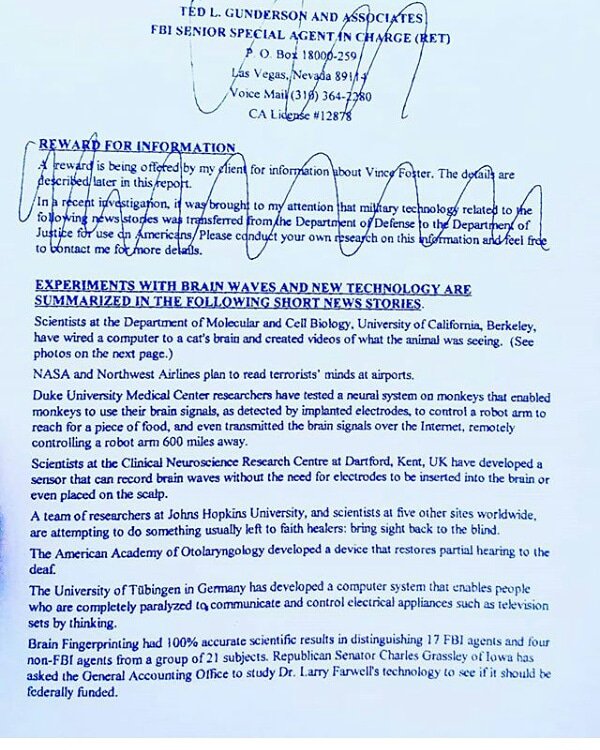 TED L. GUNDERSON AND ASSOCIATES
FBI SENIOR SPECIAL AGENT IN CHARGE (RET)
P. O. Box 18000-259
Las Vegas, Nevada 89114
Voice Mail (310) 364-2280
CA License #12878
REWARD FOR INFORMATION
A reward is being offered by my client for information about Vince Foster. The details are
described later in this report.
In a recent investigation, it was brought to my attention that military technology related to the
following news stories was transferred from the Department of Defense to the Department of
Justice for use on Americans. Please conduct your own research on this information and feel free
to contact me for more details.
EXPERIMENTS WITH BRAIN WAVES AND NEW TECHNOLOGY ARE
SUMMARIZED IN THE FOLLOWING SHORT NEWS STORIES.
Scientists at the Department of Molecular and Cell Biology, University of California, Berkeley,
have wired a computer to a cat's brain and created videos of what the animal was seeing. (See
photos on the next page.)
NASA and Northwest Airlines plan to read terrorists' minds at airports.
Duke University Medical Center researchers have tested a neural system on monkeys that enabled
monkeys to use their brain signals, as detected by implanted electrodes, to control a robot arm to
reach for a piece of food, and even transmitted the brain signals over the Internet, remotely
controlling a robot arm 600 miles away.
Scientists at the Clinical Neuroscience Research Centre at Dartford, Kent, UK have developed a
sensor that can record brain waves without the need for electrodes to be inserted into the brain or
even placed on the scalp.
A team of researchers at Johns Hopkins University, and scientists at five other sites worldwide,
are attempting to do something usually left to faith healers: bring sight back to the blind.
The American Academy of Otolaryngology developed a device that restores partial hearing to the
deaf.
The University of Tübingen in Germany has developed a computer system that enables people
who are completely paralyzed to communicate and control electrical appliances such as television
sets by thinking.
Brain Fingerprinting had 100% accurate scientific results in distinguishing 17 FBI agents and four
non-FBI agents from a group of 21 subjects. Republican Senator Charles Grassley of Iowa has
asked the General Accounting Office to study Dr. Larry Farwell's technology to see if it should be
federally funded.